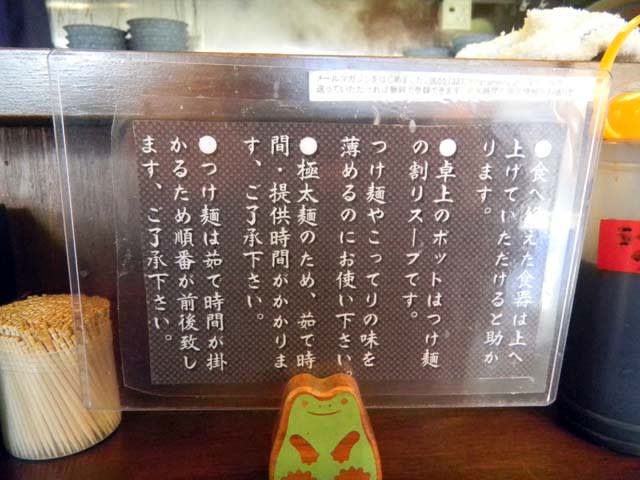 ●食べ終えた食器は上へ
上げていただけると助か
ります。
●卓上のポットはつけ麺
の割りスープです。
つけ麺やこってりの味を
薄めるのにお使い下さい。
●極太麺のため、茹で時
間・提供時間がかかりま
す、ご了承下さい。
●つけ麺は茹で時間が掛
かるため順番が前後致し
ます、ご了承下さい。
メールマガジンをはじめました。
送っていただければ無料で登録できます。